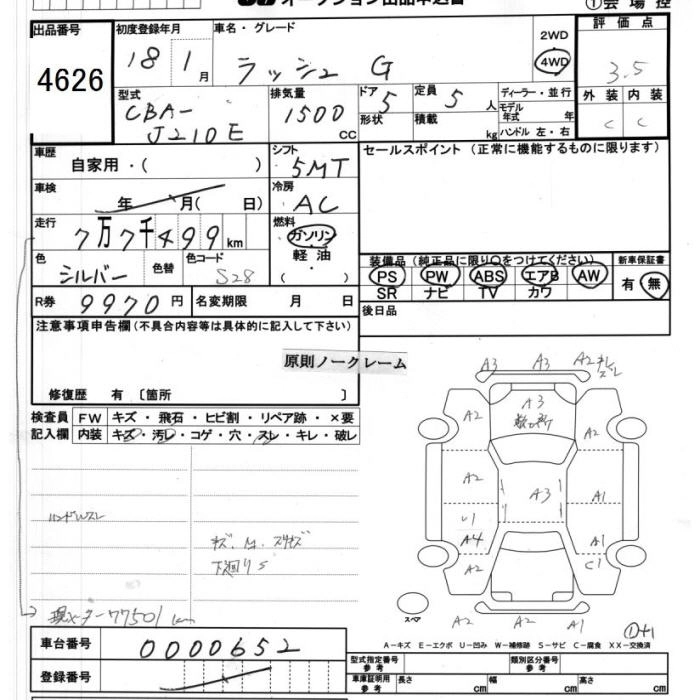 オークション出品申込書
①会場控
出品番号
4626
初度登録年月
18 1月
車名・グレード
ラッシュ G
2WD
4WD
評価点
3.5
外装 内装
C C
型式
CBA-
J210E
排気量
1500
CC
ドア
5
形状
定員
5
人
積載
kg
ディーラー・並行
モデル
年式 年
ハンドル 左・右
車歴
自家用・( )
シフト
5MT
セールスポイント (正常に機能するものに限ります)
車検
年 月( 日)
冷房
AC
走行
7万7千499km
燃料
ガソリン
軽油
( )
色
シルバー
色替
色コード
S28
装備品 (純正品に限り○をつけてください)
PS PW ABS エアB AW
SR ナビ TV カワ
新車保証書
有・無
R券
9970円
名変期限 月 日
後日品
注意事項申告欄(不具合内容等は具体的に記入して下さい)
原則ノークレーム
修復歴 有〔箇所 〕
検査員
記入欄
FW キズ・飛石・ヒビ割・リペア跡・×要
内装 キズ・汚レ・コゲ・穴・スレ・キレ・破レ
ハンドルスレ
下廻りS
現メーター77501km
A3 A3 A2
A2 A3 A2
A2 A3 A1
A4 A1
A2 C1
スペア
A2 A2 A1
A-キズ E-エクボ U-凹み W-補修跡 S-サビ C-腐食 XX-交換済
車台番号
0000652
登録番号
型式指定番号
参考
類別区分番号
参考
車庫証明用
参考
長さ cm 幅 cm 高さ cm